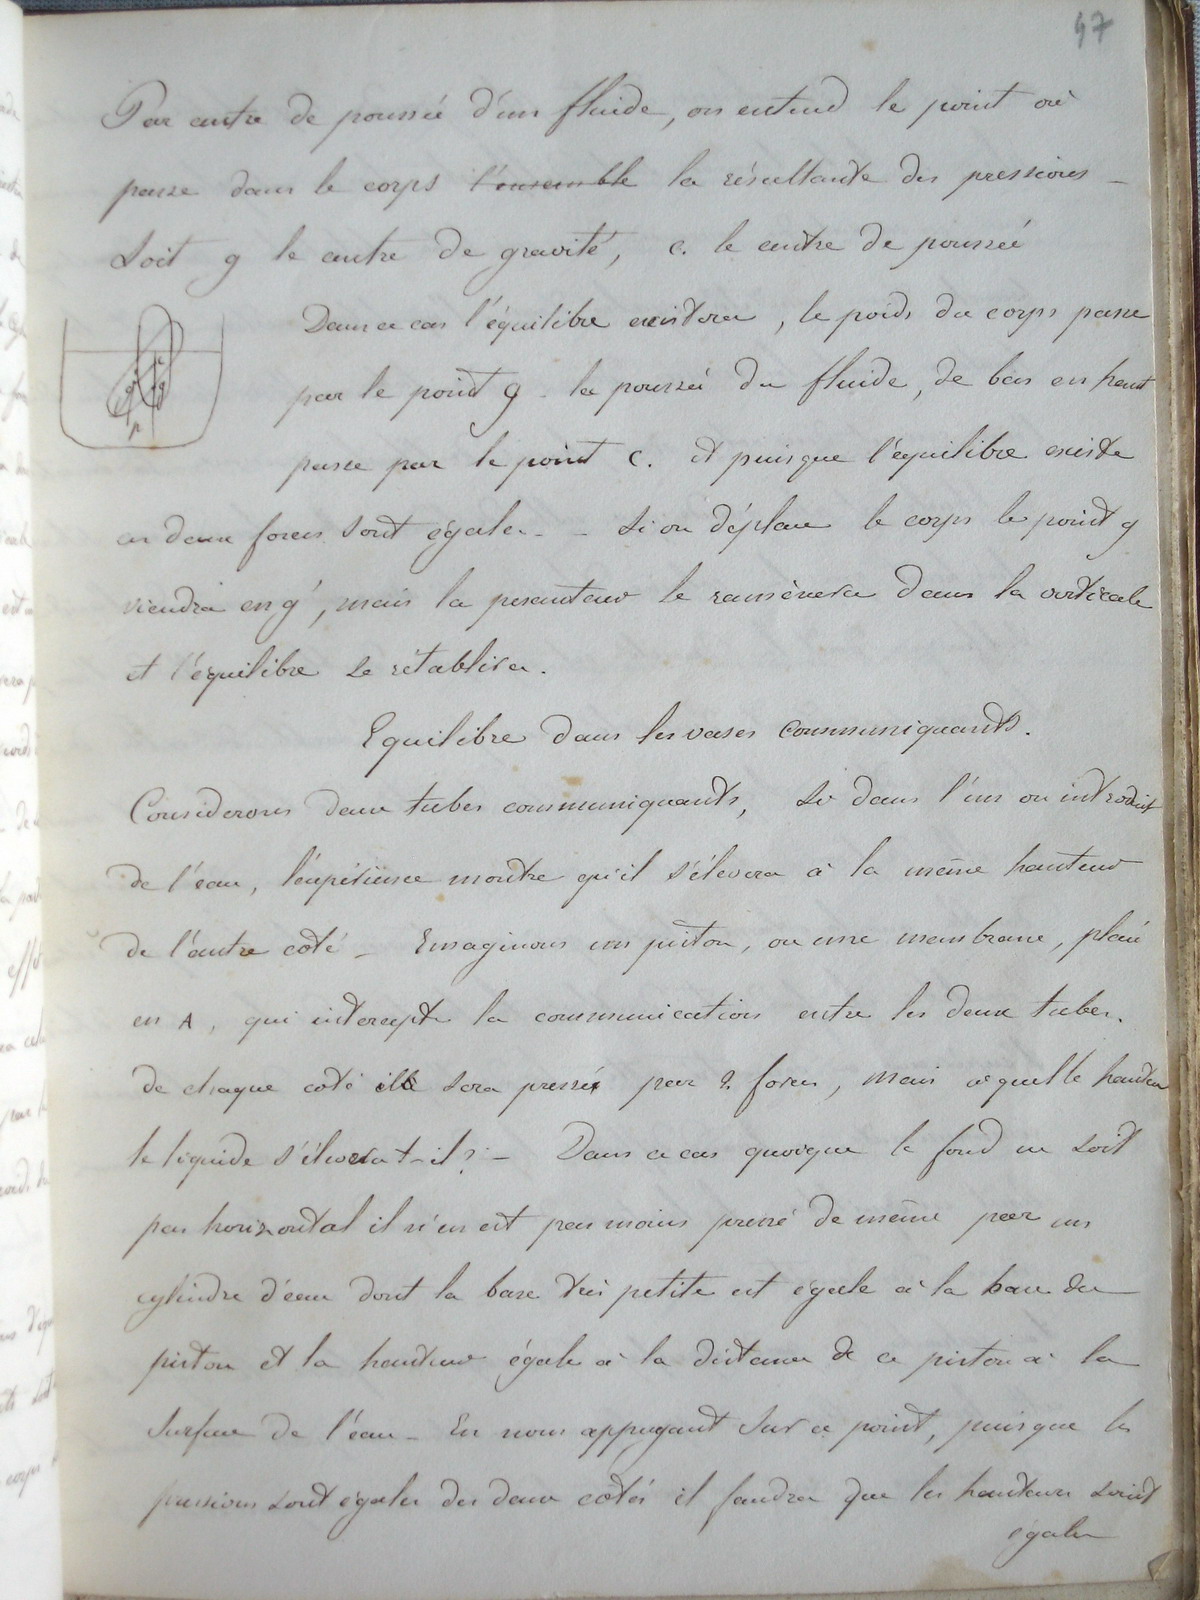 47
Par centre de poussée d'un fluide, on entend le point où
passe dans le corps l'ensemble la résultante des pressions –
Soit g le centre de gravité, c. le centre de poussée
Dans ce cas l'équilibre existera, le poids du corps passe
par le point g – la poussée du fluide, de bas en haut
passe par le point c. et puisque l'équilibre existe
ces deux forces sont égales – – Si on déplace le corps le point g
viendra en g', mais la pesanteur le ramènera dans la verticale
et l'équilibre se rétablira.
Equilibre dans les vases communiquants.
Considerons deux tubes communiquants, Si dans l'un on introduit
de l'eau, l'expérience montre qu'il s'élevera à la même hauteur
de l'autre coté – Imaginons un piston, ou une membrane, placé
en A, qui intercepte la communication entre les deux tubes.
de chaque coté il sera pressé par 2 forces, mais à quelle hauteur
le liquide s'élevera t-il? – Dans ce cas quoique le fond ne soit
pas horizontal il n'en est pas moins pressé de même par un
cylindre d'eau dont la base très petite est égale à la base du
piston et la hauteur égale à la distance de ce piston à la
surface de l'eau – En nous appuyant sur ce point, puisque les
pressions sont égales des deux cotés il faudra que les hauteurs soient
égales